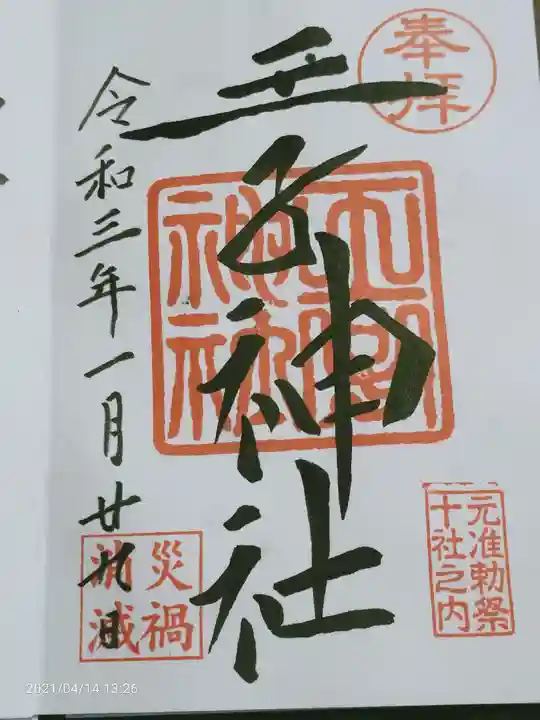 奉拝
王子神社
元准勅祭
十社之内
災禍
消滅
令和三年一月廿九日
2021/04/14 13:26